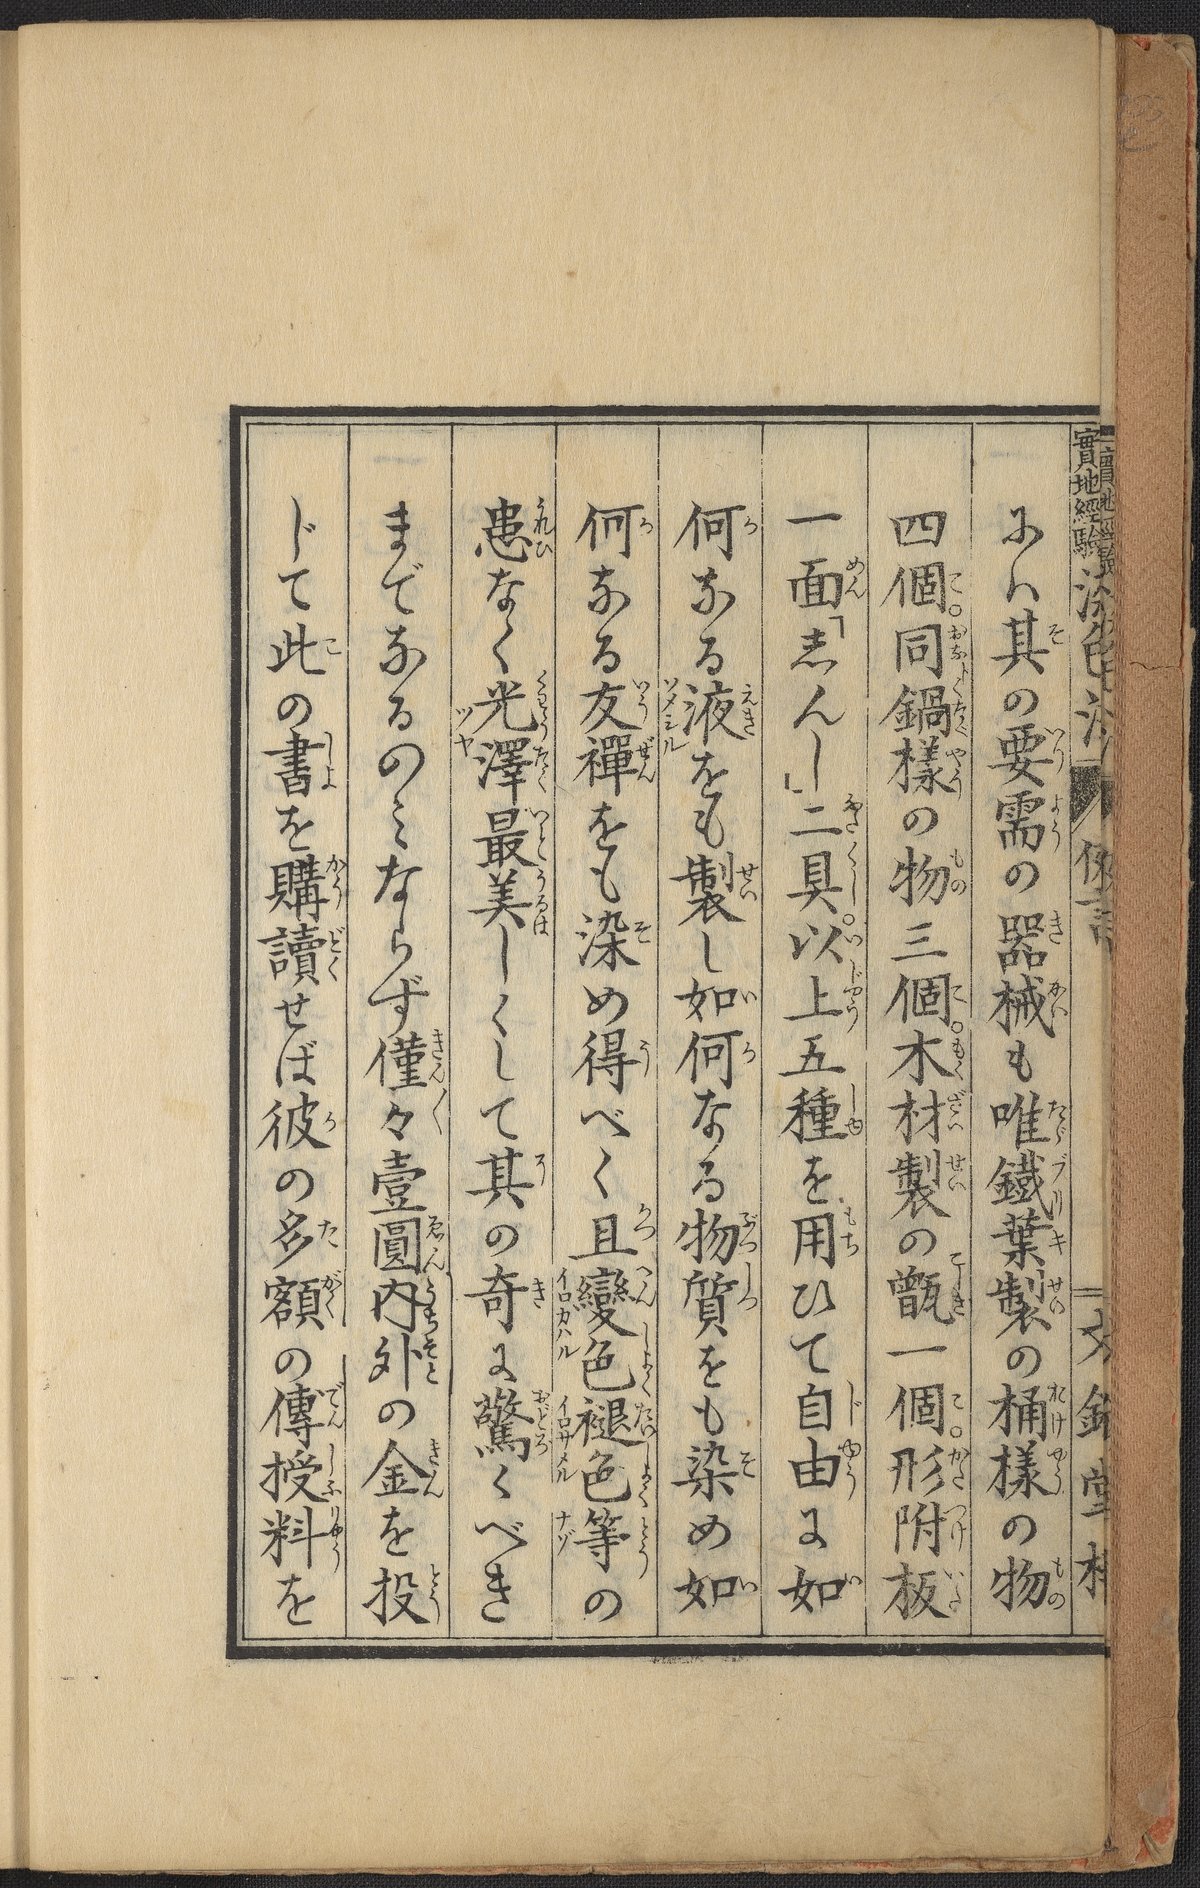 實地經驗
にハ其の要需の器械も唯鐵葉製の桶樣の物
四個。同鍋樣の物三個。木材製の甑一個。形附板
一面「志んし」二具。以上五種を用ひて自由に如
何なる液をも製し如何なる物質をも染め如
何なる友禪をも染め得べく且變色褪色等の
患なく光澤最美しくして其の奇に驚くべき
までなるのミならず僅々壹圓内外の金を投
じて此の書を購讀せば彼の多額の傳授料を